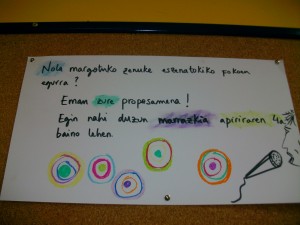 Nola margotuko zenuke eszenatokiko pokoan
egurra?
Eman zure proposamena!
Egin nahi duzun marrazkia apirilaren 4a
baino lehen.